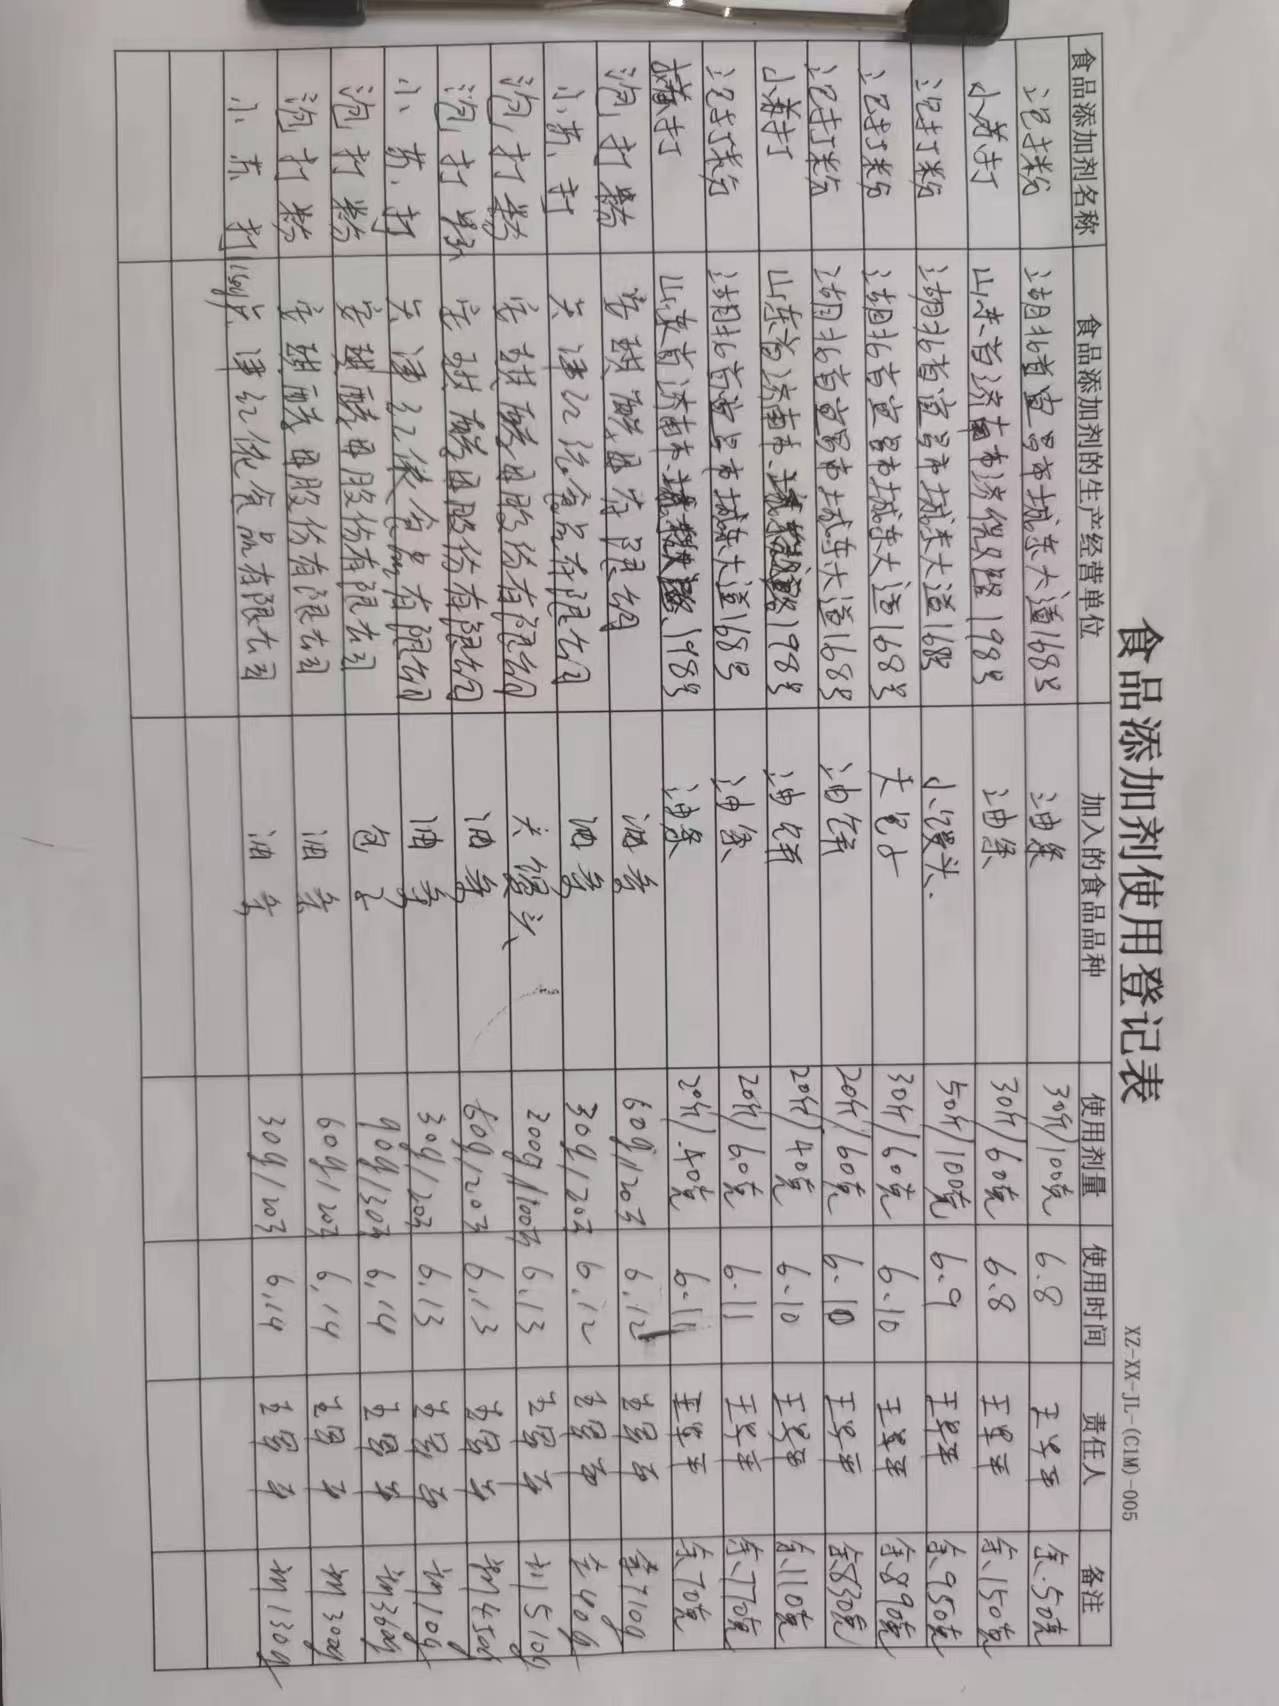 食品添加剂使用登记表
XZ-XX-JL-(CIM)-005
食品添加剂名称 食品添加剂的生产经营单位 加入的食品品种 使用剂量 使用时间 责任人 备注
泡打粉 湖北省宜昌市城东大道168号 油条 30斤/100克 6.8 王 平 余.50克
小苏打 山东省济南市济 路198号 油条 30斤/60克 6.8 王 平 余.150克
泡打粉 湖北省宜昌市城东大道168号 小馒头. 50斤/100克 6.9 王 平 余.950克
泡打粉 湖北省宜昌市城东大道168号 大包子 30斤/60克 6.10 王 平 余.890克
泡打粉 湖北省宜昌市城东大道168号 油饼 20斤/60克 6.10 王 平 余830克
小苏打 山东省济南市 198号 油饼 20斤/40克 6.10 王 平 余.110克
泡打粉 湖北省宜昌市城东大道168号 油条 20斤/60克 6.11 王 平 余.770克
苏打 山东省济南市 198号 油条 20斤/40克 6.11 王 平 余70克
泡打粉 安琪酵母有限公司 油条 60g/20斤 6.12 余710g
小苏打 天津红 食品有限公司 油条 30g/20斤 6.12 余40g
泡打粉 安琪酵母股份有限公司 大馒头 200g/100斤 6.13 510g
泡打粉 安琪酵母股份有限公司 油条 60g/20斤 6.13 450g
小苏打 天津红 食品有限公司 油条 30g/20斤 6.13 10g
泡打粉 安琪酵母股份有限公司 包子 90g/30斤 6.14 360g
泡打粉 安琪酵母股份有限公司 油条 60g/20斤 6.14 300g
小苏打 津红 食品有限公司 油条 30g/20斤 6.14 130g